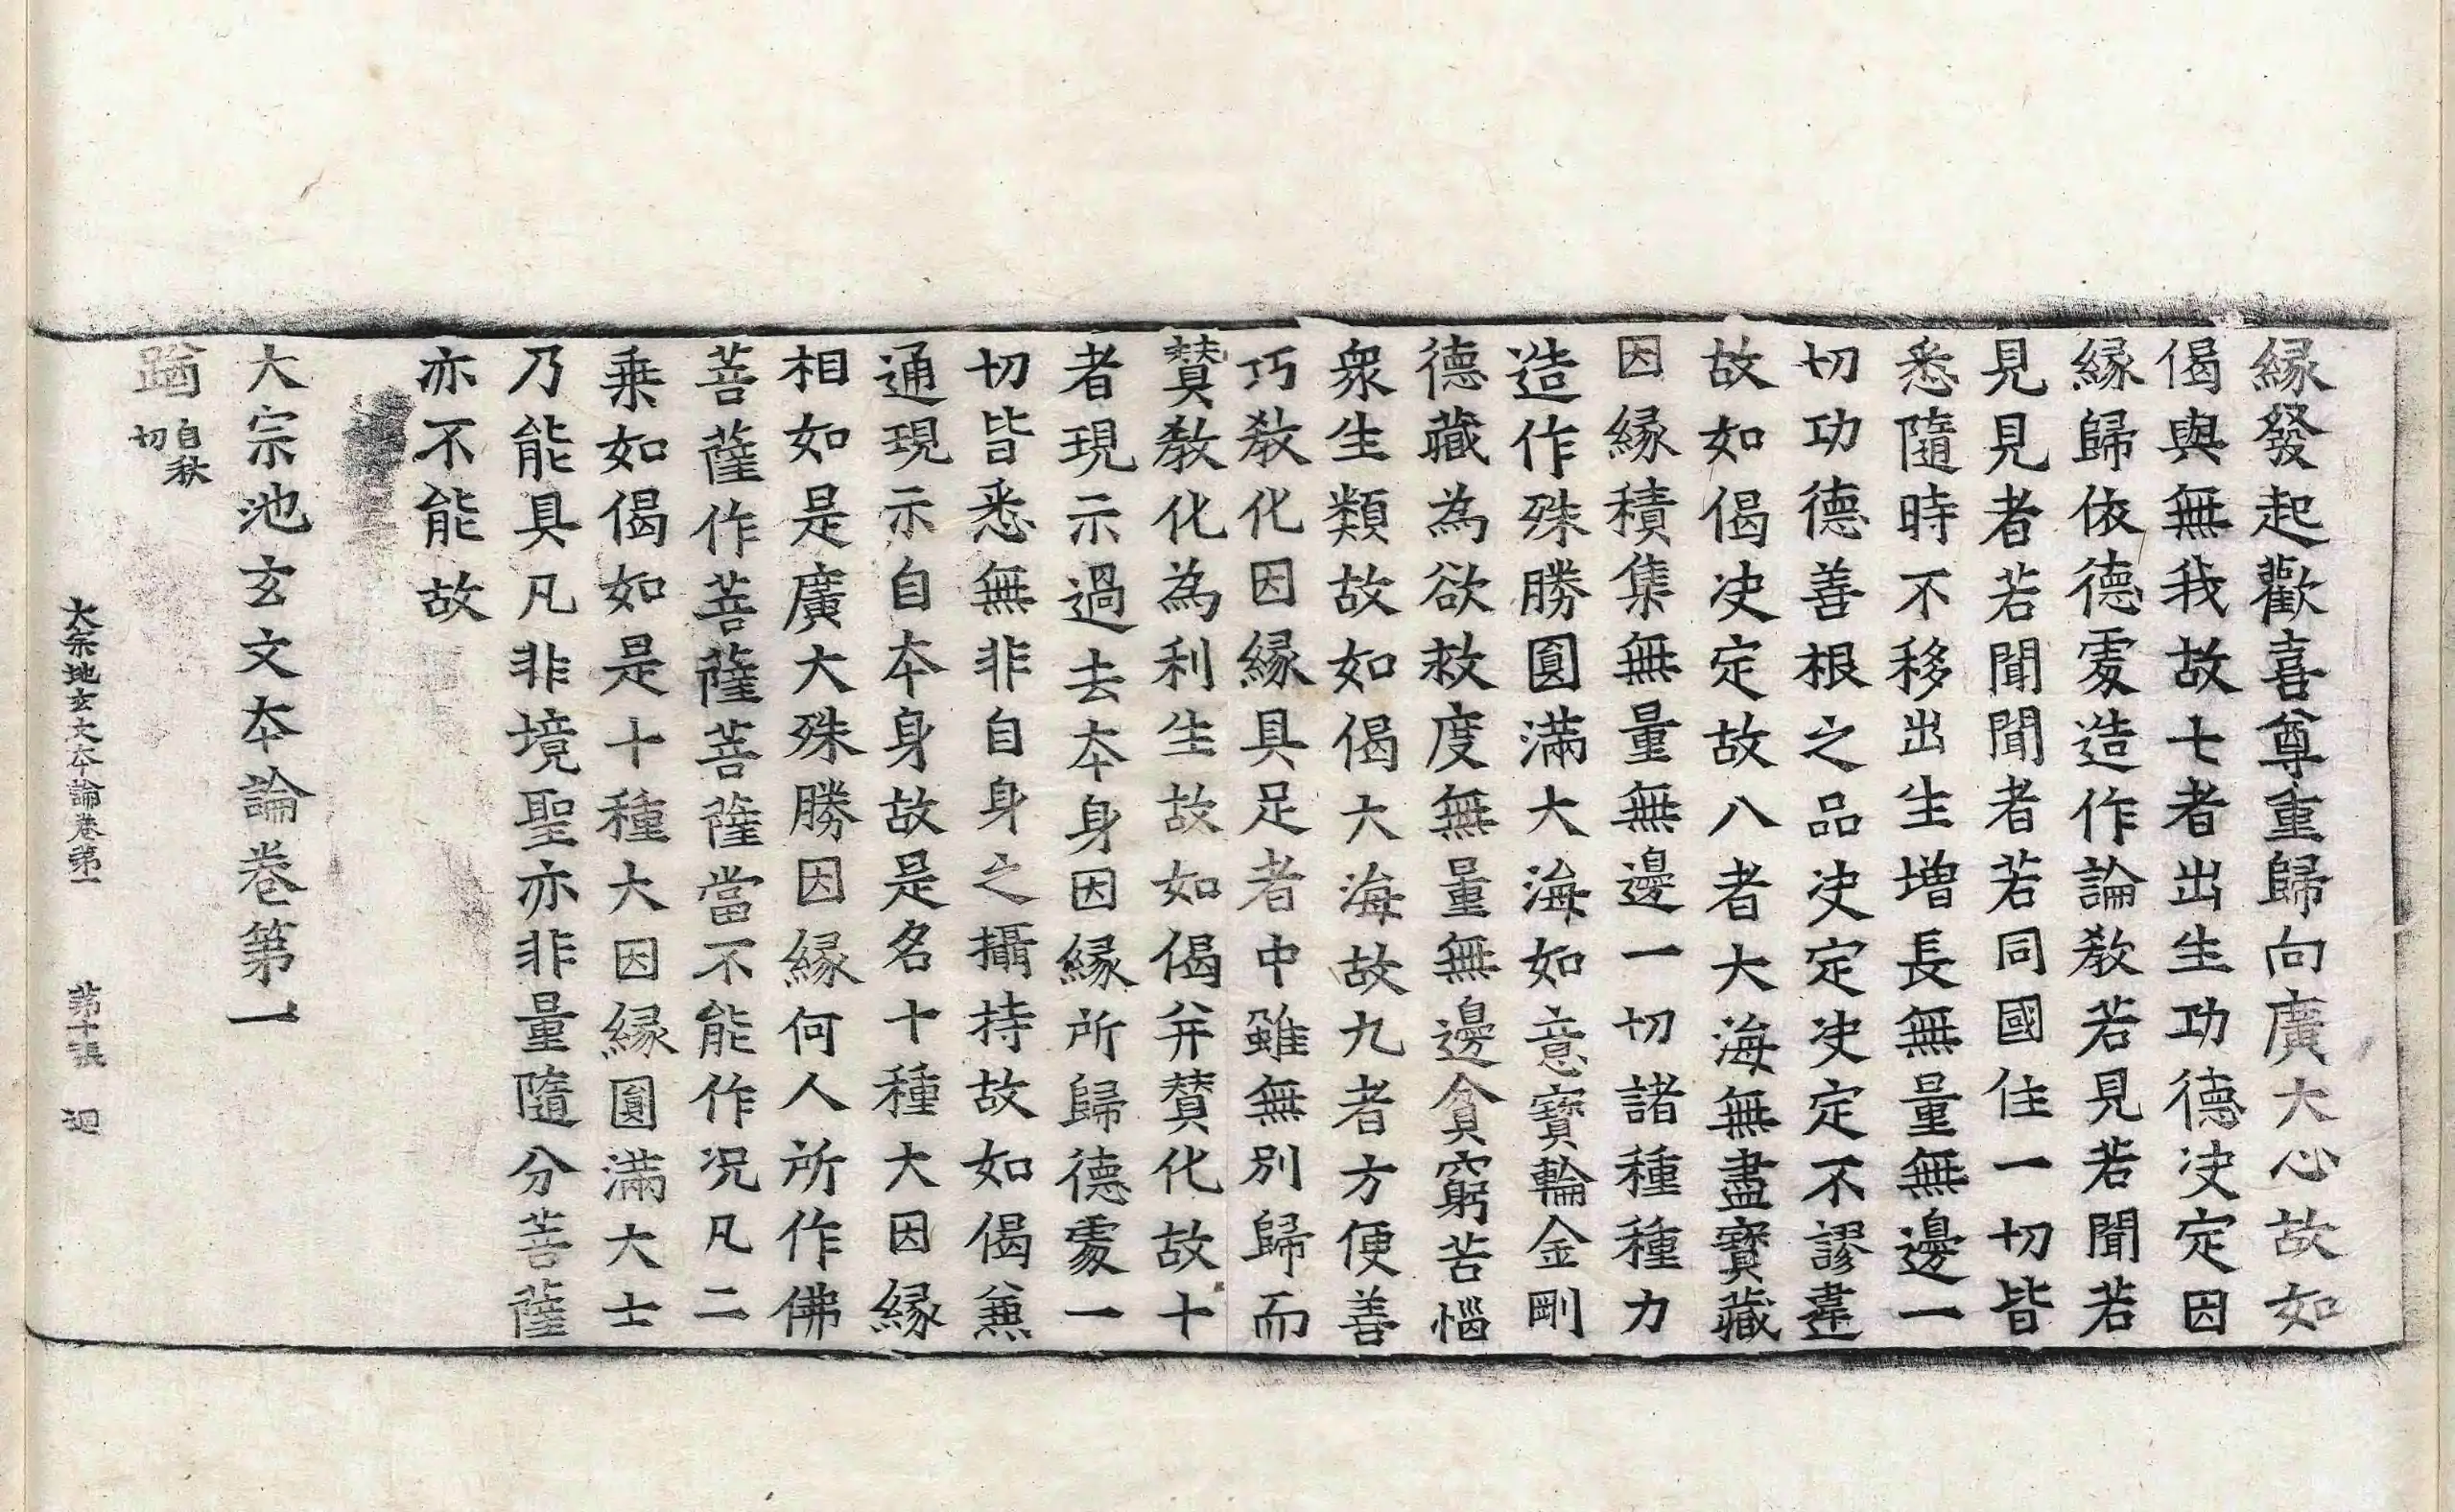 縁發起歡喜尊重歸向廣大心故如
偈與無我故七者出生功德决定因
縁歸依德䖏造作論敎若見若聞若
見見者若聞聞者若同國住一切皆
悉隨時不移出生增長無量無邊一
切功德善根之品决定决定不謬違
故如偈决定故八者大海無盡寳藏
因縁積集無量無邊一切諸種種力
造作殊勝圓滿大海如意寳輪金剛
德藏為欲救度無量無邊貪窮苦惱
衆生類故如偈大海故九者方便善
巧敎化因縁具足者中雖無別歸而
賛敎化為利生故如偈并賛化故十
者現示過去夲身因縁所歸德䖏一
切皆悉無非自身之攝持故如偈兼
通現示自夲身故是名十種大因縁
相如是廣大殊勝因縁何人所作佛
菩薩作菩薩菩薩當不能作况凡二
乗如偈如是十種大因縁圓滿大士
乃能具凡非境聖亦非量隨分菩薩
亦不能故
大宗池玄文夲論卷第一
䠓自秋切
大宗地玄文夲論卷第一 第十張 廻